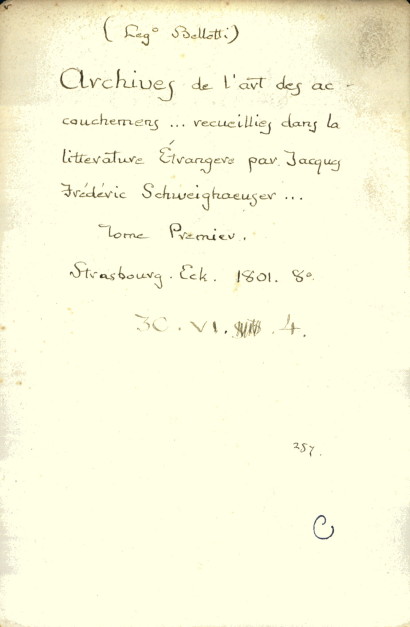 (Leg° Bellotti)
Archives de l'art des ac-
couchemens ... recueillies dans la
littérature Étrangere par Jacques
Frédéric Schweighaeuser ...
Tome Premier.
Strasbourg. Eck. 1801. 8°.
30. VI. . 4.
257.
C